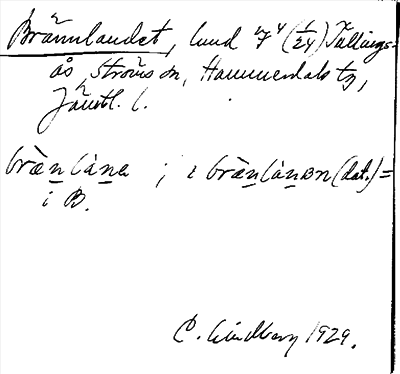 Brännlandet, lund 7⁴ (1/24) Tullings-
ås, Ströms sn, Hammerdals tg,
Jämtl. l.
bræ̀nlàna ; i bræ̀nlànɞn (dat.) =
i B.
C. Lindberg 1929.